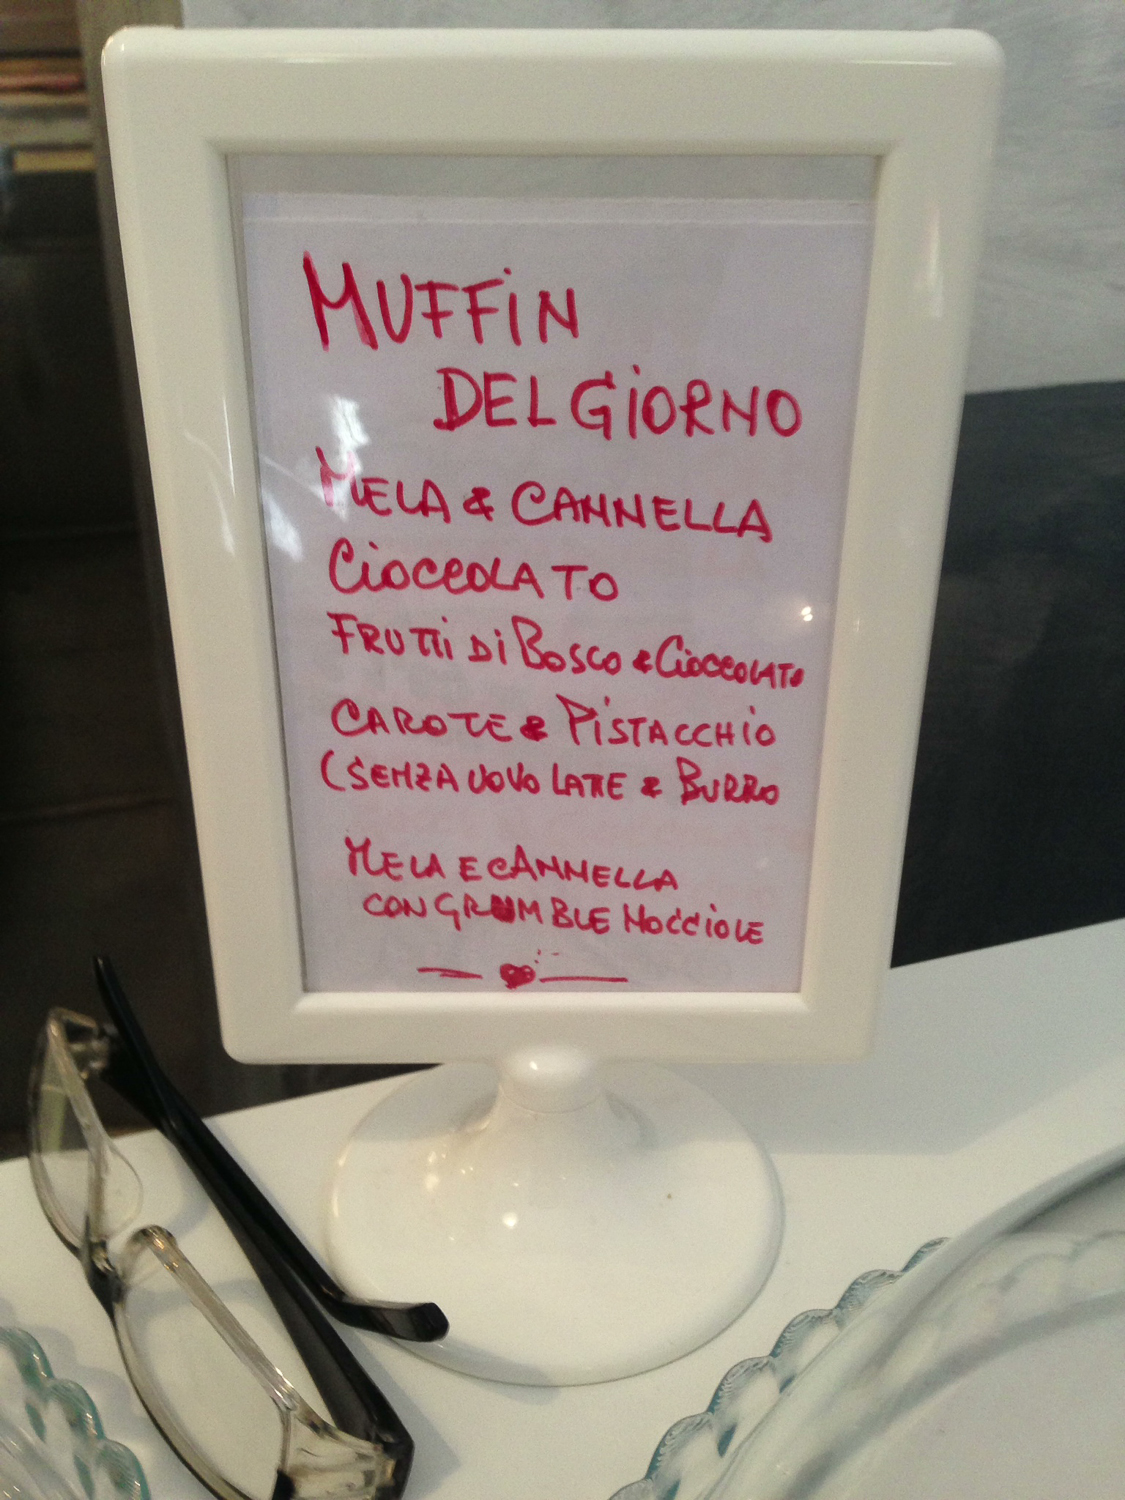 MUFFIN
DEL GIORNO
MELA & CANNELLA
CIOCCOLATO
FRUTTI DI BOSCO & CIOCCOLATO
CAROTE & PISTACCHIO
(SENZA UOVO LATTE & BURRO
MELA E CANNELLA
CON GRUMBLE NOCCIOLE